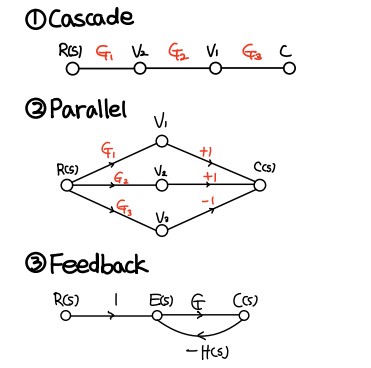 ①Cascade
R(s) G1 V2 G2 V1 G3 C
②Parallel
V1
G1 +1
R(s) G2 V2 +1 C(s)
G3 V3 -1
③Feedback
R(s) 1 E(s) G C(s)
-H(s)